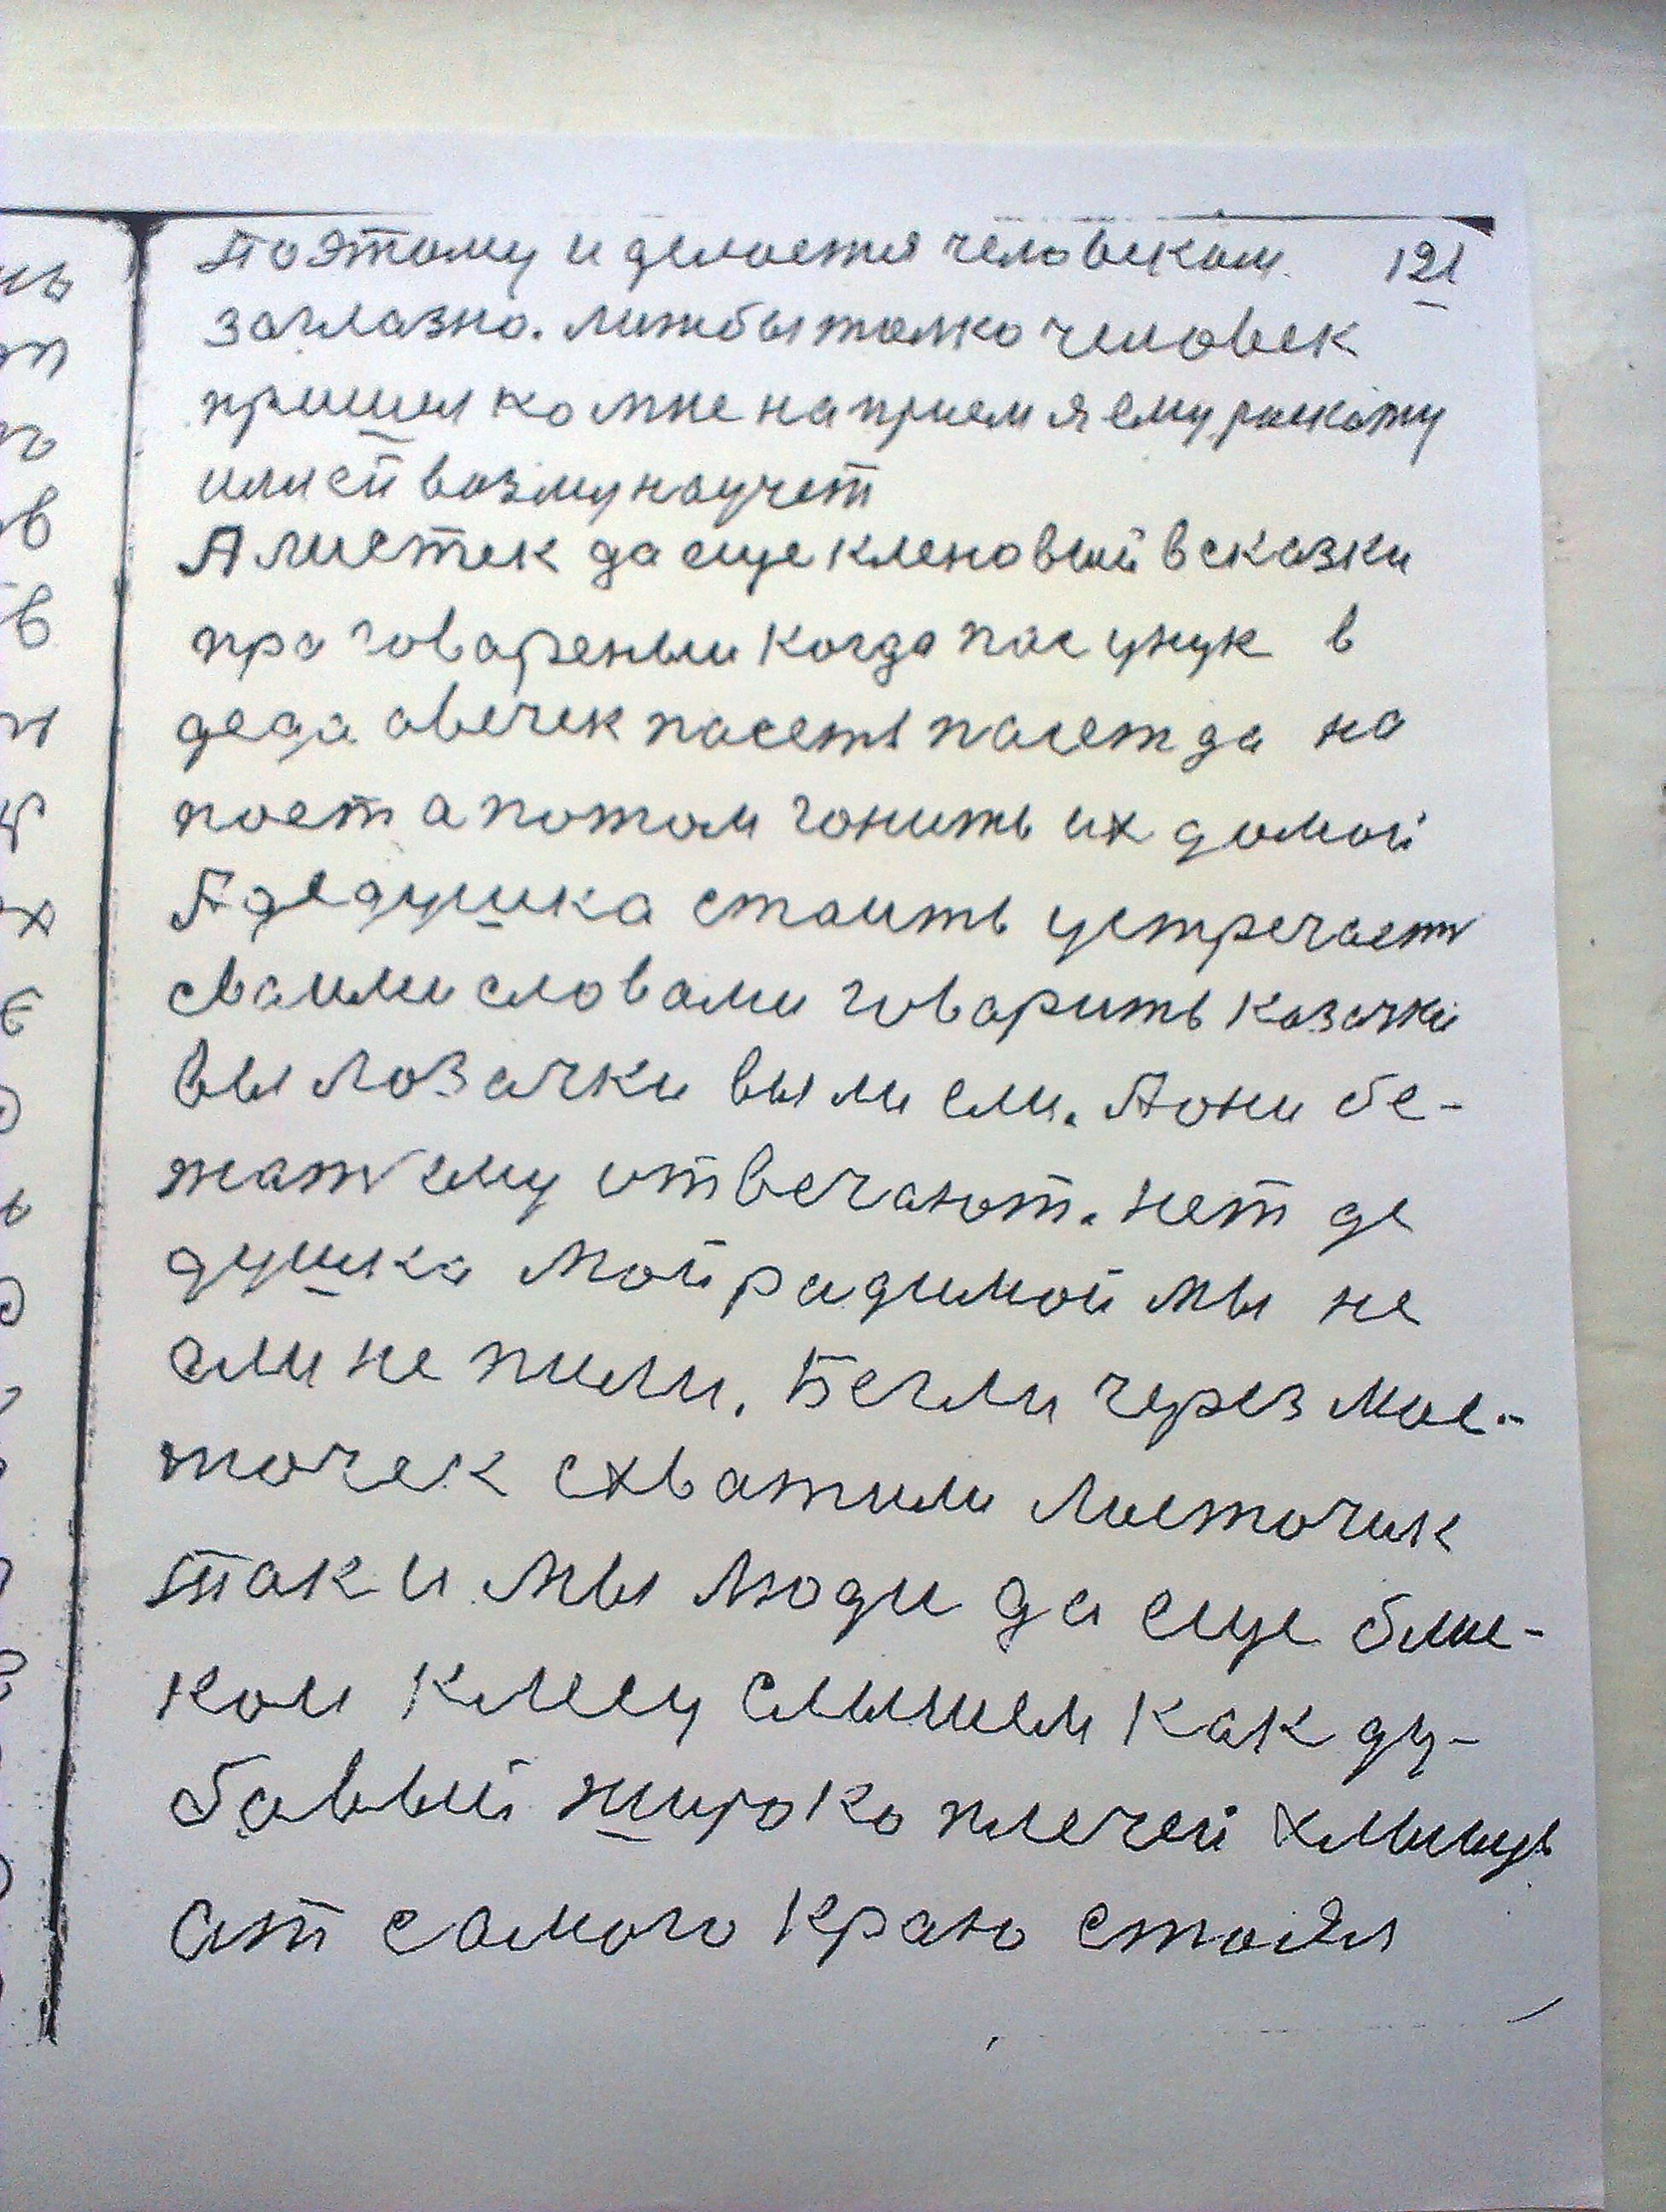 Поэтому и делается человеком 121
заглазно. лижбы толко человек
пришел ко мне на прием я ему раскажу
или ей возму на учет
А листек да еще кленовый в сказки
пра говареныи когда пас унук в
деда авечек пасеть пасет да на
поет а потом гонить их домой
А дедушка стаить устречает
сваими словами говарить козачки
вы лозачки вы ли ели. А они бе-
жат ему отвечают. нет де
душка мой радимой мы не
али не пили. Бегли через мос-
точек схватили листочик
так и мы люди да еще блис-
ком к лесу слышем как ду-
бавый широко плечей
ат самого краю стоял